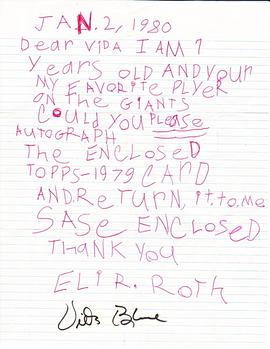 JAN. 2, 1980
Dear VIDA I AM 7
years OLD AND your
MY FAVORITE PLYER
ON THE GIANTS
COULD YOU PLEASE
AUTOGRAPH
The ENCLOSED
TOPPS-1979 CARD
AND.ReTURN, iT. to. Me
SASE ENCLOSED
THANK YOU
ELI R. ROTH
Vida Blue